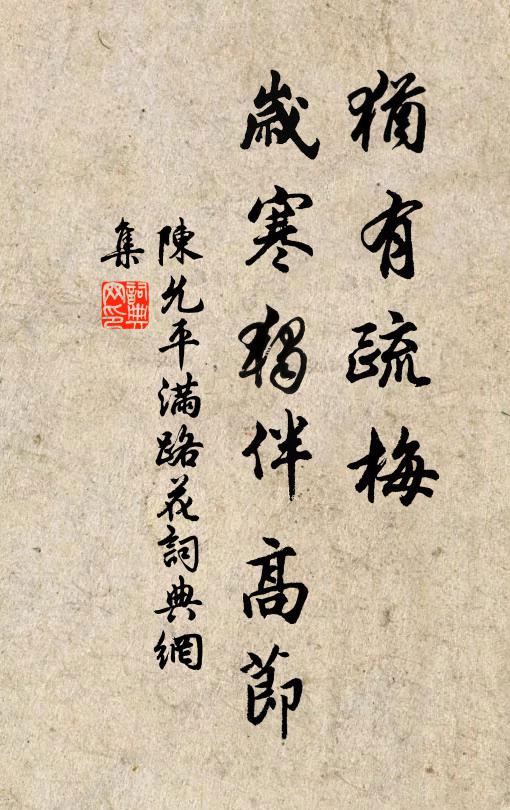 猶有疏梅
歲寒獨伴高節
陳允平滿路花詞典網
集
詞典網印